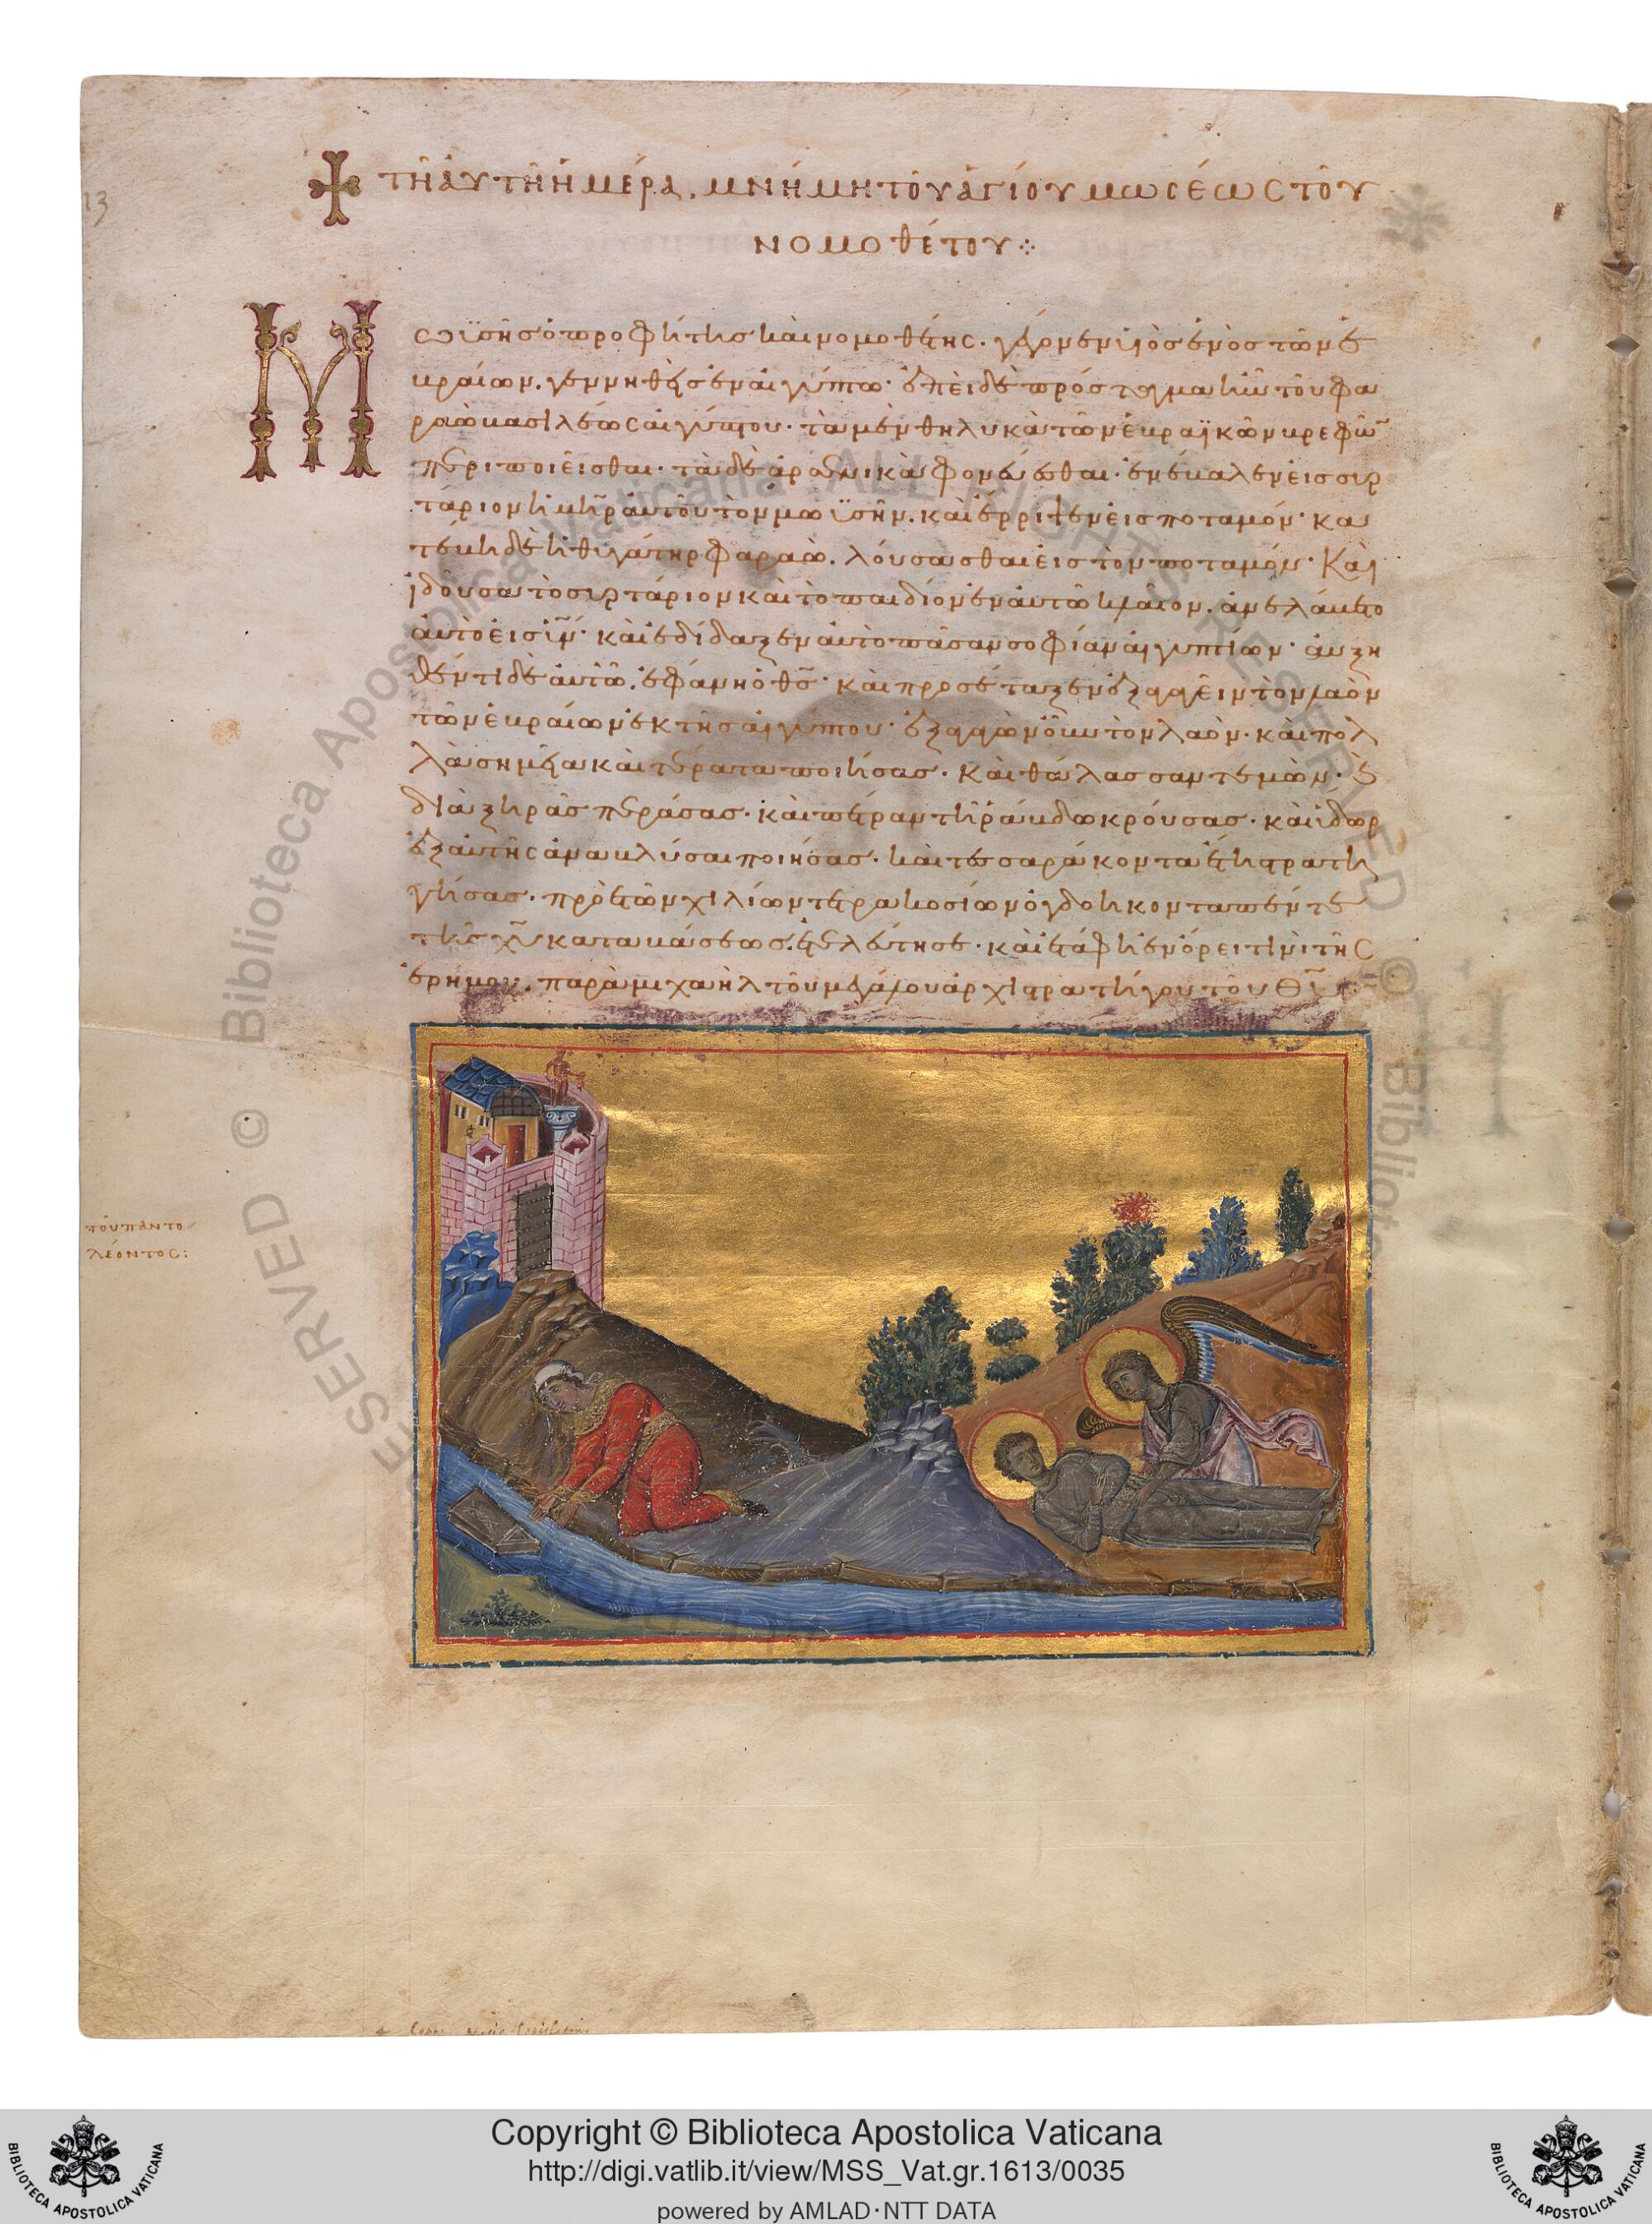 ✢ τῆ αὐτῆ ἡμέρα, μνήμη τοῦ ἁγίου μωσέως τοῦ
νομοθέτου
Μωϊσῆς ὁ προφήτης καὶ νομοθέτης· γέγονεν υἱὸς ἑνὸς τῶν ἑ
βραίων, γεννηθεὶς ἐν αἰγύπτω· ἐπεὶ δὲ πρόσταγμα ἦν τοῦ φα
ραὼ βασιλέως αἰγύπτου· τὰ μὲν θηλυκὰ τῶν ἑβραϊκῶν βρεφῶ̅
περιποιεῖσθαι· τὰ δὲ ἀρσενικὰ φονεύεσθαι· ἐνέβαλεν εἰς συρ
τάριον ἡ μη̅ρ αὐτοῦ τὸν μωϊσῆν. καὶ ἔρριψεν εἰς ποταμόν· κα
τέβη δὲ ἡ θυγάτηρ φαραὼ. λούσασθαι εἰς τὸν ποταμόν· Καὶ
ἰδοῦσα τὸ συρτάριον καὶ τὸ παιδίον ἐν αὐτῶ κλαῖον. ἀνελάβετο
αὐτὸ εἰς υι̅ν· καὶ ἐδίδαξεν αὐτὸ πᾶσαν σοφίαν αἰγυπτίων· αὐξη
θέντι δὲ αὐτῶ. ἐφάνη ὁ θ̅ς· καὶ προσέταξεν ἐξαγαγεῖν τὸν λαὸν
τῶν ἑβραίων ἐκ τῆς αἰγύπτου· ἐξαγαγὼν οὖν τὸν λαὸν· καὶ πολ
λὰ σημεῖα καὶ τέρατα ποιήσας· Καὶ θάλασσαν τεμὼν· ϗ
διὰ ξηρᾶς περάσας· καὶ πέτραν τῆ ῥάβδω κρούσας· καὶ ὕδωρ
ἐξ αὐτῆς ἀναβλύσαι ποιήσας· καὶ τεσσαράκοντα ἔτη στρατη
γήσας· πρὸ ἐτῶν χιλίων τετρακοσίων ὀγδοήκοντα πέντε
τῆς χ̅υ καταβάσεως. ἐτελεύτησε· καὶ ἐτάφη ἐν ὄρει τινὶ τῆς
ἐρήμου. παρὰ μιχαὴλ τοῦ μεγάλου ἀρχιστρατήγου τοῦ θ̅υ
τοῦ παντο
λέοντος:
Copyright © Biblioteca Apostolica Vaticana
http://digi.vatlib.it/view/MSS_Vat.gr.1613/0035
powered by AMLAD · NTT DATA
BIBLIOTECA APOSTOLICA VATICANA
BIBLIOTECA APOSTOLICA VATICANA